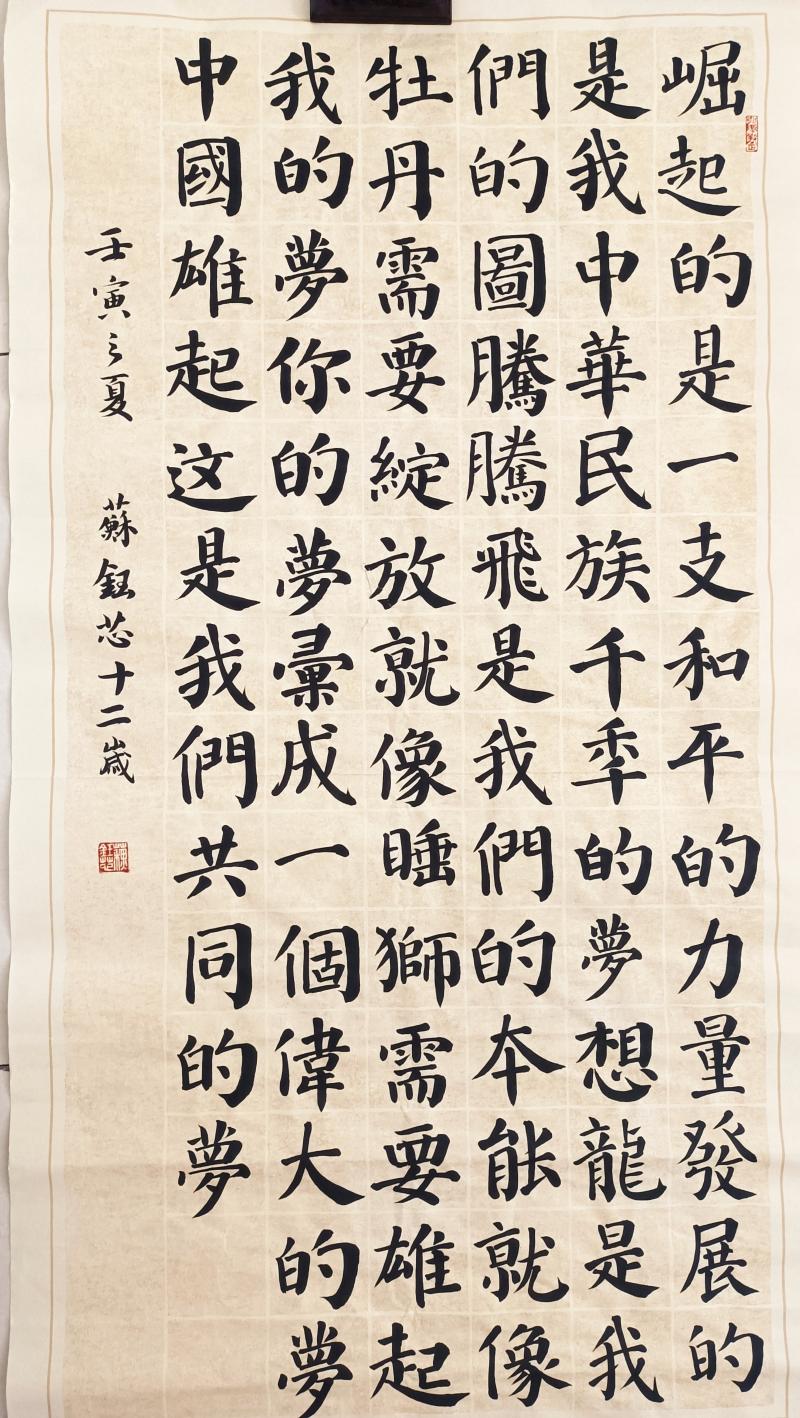 崛起的是一支和平的力量發展的
是我中華民族千秊的夢想龍是我
們的圖騰騰飛是我們的本能就像
牡丹需要綻放就像睡獅需要雄起
我的夢你的夢彙成一個偉大的夢
中國雄起这是我們共同的夢
壬寅之夏 蘇鈺芯十二歲